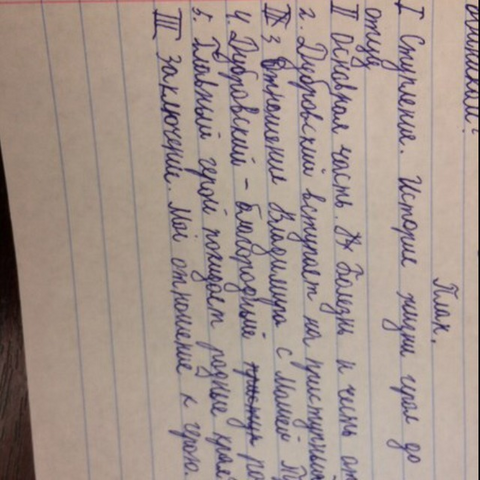 План.
I Ступление. История жизни героя до
отца
II Основная часть. Болезнь и честь от
2. Дубровский вступает на приступный
3. Отношение Владимира с Машей Т
4. Дубровский - благородный ра
5. Главный герой покидает родные края.
III Заключение. Моё отношение к герою.